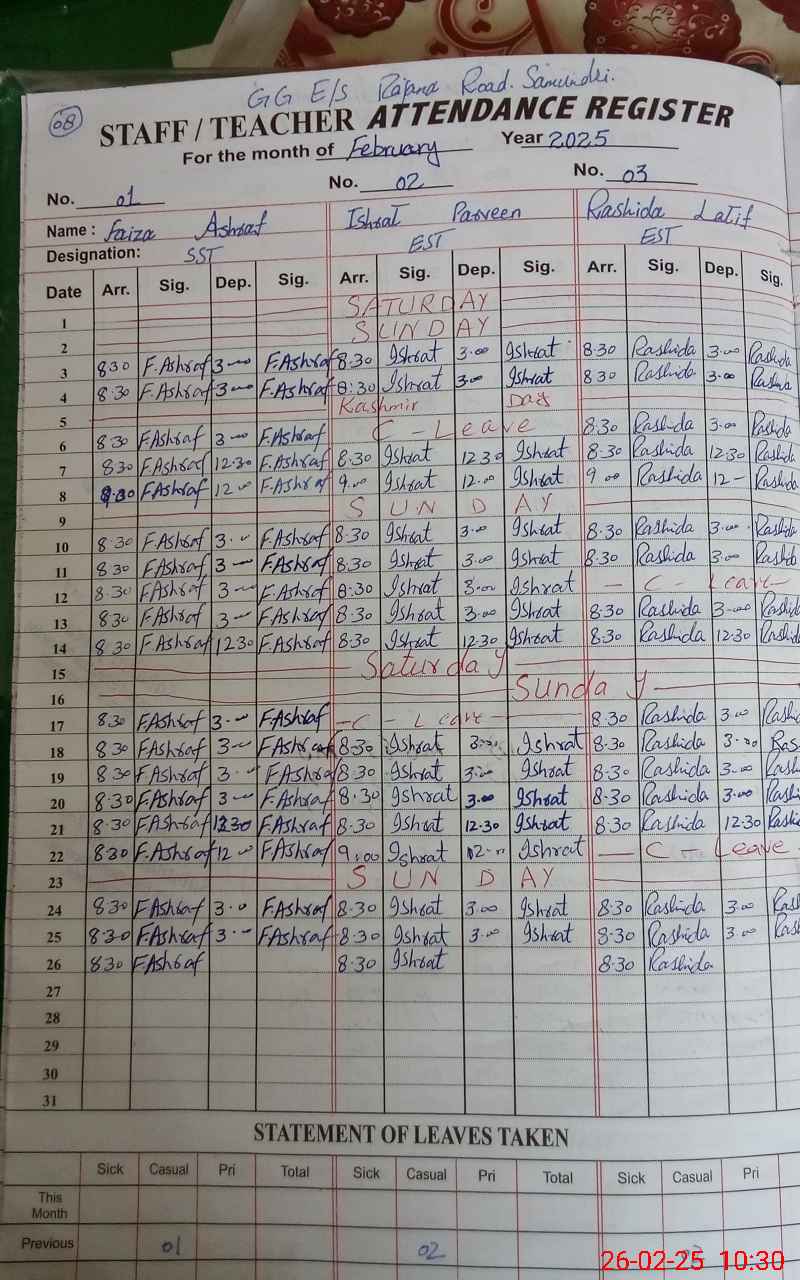 GG E/S Rajana Road. Samundri.
08
STAFF / TEACHER ATTENDANCE REGISTER
For the month of February Year 2025
No. 01 No. 02 No. 03
Name : Faiza Ashraf Ishrat Parveen Rashida Latif
Designation: SST EST EST
Date Arr. Sig. Dep. Sig. Arr. Sig. Dep. Sig. Arr. Sig. Dep. Sig.
1 SATURDAY
2 SUNDAY
3 8.30 F.Ashraf 3-00 F.Ashraf 8.30 Ishrat 3.00 Ishrat 8.30 Rashida 3.00 Rashida
4 8.30 F.Ashraf 3-00 F.Ashraf 8.30 Ishrat 3.00 Ishrat 8.30 Rashida 3.00 Rashida
5 Kashmir Day
6 8.30 F.Ashraf 3-00 F.Ashraf C - Leave 8.30 Rashida 3.00 Rashida
7 8.30 F.Ashraf 12.30 F.Ashraf 8.30 Ishrat 12.30 Ishrat 8.30 Rashida 12.30 Rashida
8 F.Ashraf 12.00 F.Ashraf 9.00 Ishrat 12.00 Ishrat 9.00 Rashida 12- Rashida
9 SUNDAY
10 8.30 F.Ashraf 3.00 F.Ashraf 8.30 Ishrat 3.00 Ishrat 8.30 Rashida 3.00 Rashida
11 8.30 F.Ashraf 3-00 F.Ashraf 8.30 Ishrat 3.00 Ishrat 8.30 Rashida 3.00 Rashid
12 8.30 F.Ashraf 3-00 F.Ashraf 8.30 Ishrat 3.00 Ishrat - C - Leave -
13 8.30 F.Ashraf 3-00 F.Ashraf 8.30 Ishrat 3.00 Ishrat 8.30 Rashida 3-00 Rashid
14 8.30 F.Ashraf 12.30 F.Ashraf 8.30 Ishrat 12.30 Ishrat 8.30 Rashida 12.30 Rashid
15 Saturday
16 Sunday
17 8.30 F.Ashraf 3.00 F.Ashraf - C - Leave - 8.30 Rashida 3.00 Rashi
18 8.30 F.Ashraf 3-00 F.Ashraf 8.30 Ishrat 3.00 Ishrat 8.30 Rashida 3.00 Ras
19 8.30 F.Ashraf 3.00 F.Ashraf 8.30 Ishrat 3.00 Ishrat 8.30 Rashida 3.00 Rash
20 8.30 F.Ashraf 3-00 F.Ashraf 8.30 Ishrat 3.00 Ishrat 8.30 Rashida 3.00 Rashi
21 8.30 F.Ashraf 12.30 F.Ashraf 8.30 Ishrat 12.30 Ishrat 8.30 Rashida 12.30 Rashi
22 8.30 F.Ashraf 12.00 F.Ashraf 9.00 Ishrat Ishrat - C - Leave -
23 SUNDAY
24 8.30 F.Ashraf 3.00 F.Ashraf 8.30 Ishrat 3.00 Ishrat 8.30 Rashida 3.00 Rash
25 8.30 F.Ashraf 3.00 F.Ashraf 8.30 Ishrat 3.00 Ishrat 8.30 Rashida 3.00 Rash
26 8.30 F.Ashraf 8.30 Ishrat 8.30 Rashida
27
28
29
30
31
STATEMENT OF LEAVES TAKEN
Sick Casual Pri Total Sick Casual Pri Total Sick Casual Pri
This Month
Previous 01 02
26-02-25 10:30